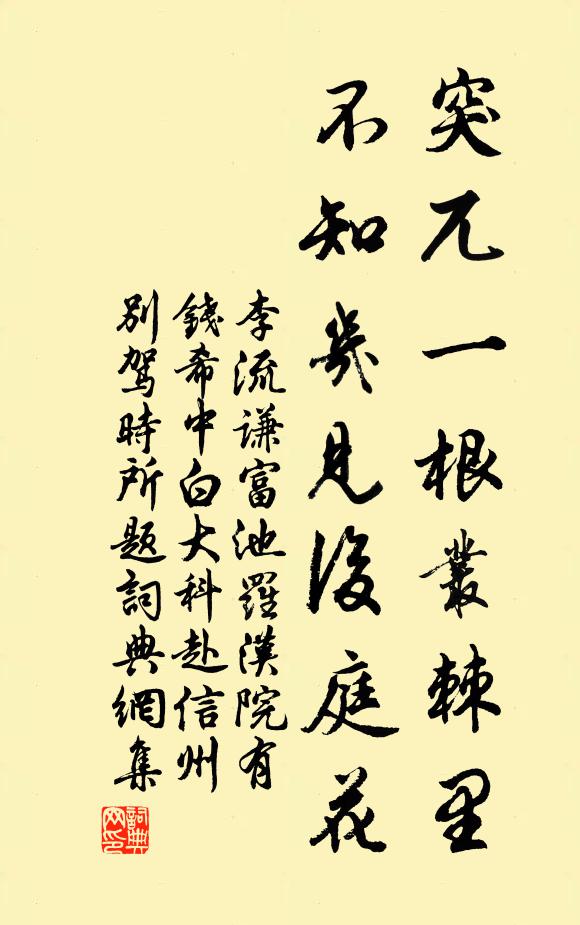 突兀一根叢棘里
不知幾見後庭花
李流谦富池羅漢院有
錢希中白大科赴信州
别駕時所题詞典網集
詞典網印